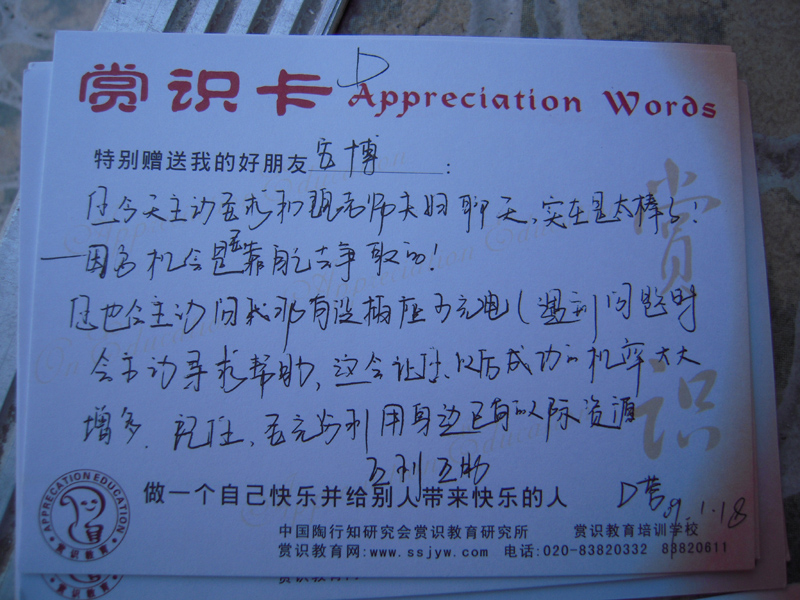 赏识卡 D Appreciation Words
特别赠送我的好朋友宏博:
您今天主动要求和魏老师夫妇聊天,实在是太棒了!
—因为机会是要靠自己去争取的!
您也会主动问我哪有没插座可充电(遇到问题时
会主动寻求帮助,这会让您以后成功的机率大大
增多.记住,要充分利用身边已有的人际资源
互利互助
做一个自己快乐并给别人带来快乐的人
D营 09.1.18
APPRECATION EDUCATION
赏识教育
中国陶行知研究会赏识教育研究所 赏识教育培训学校
赏识教育网:www.ssjyw.com 电话:020-83820332 83820611
赏识